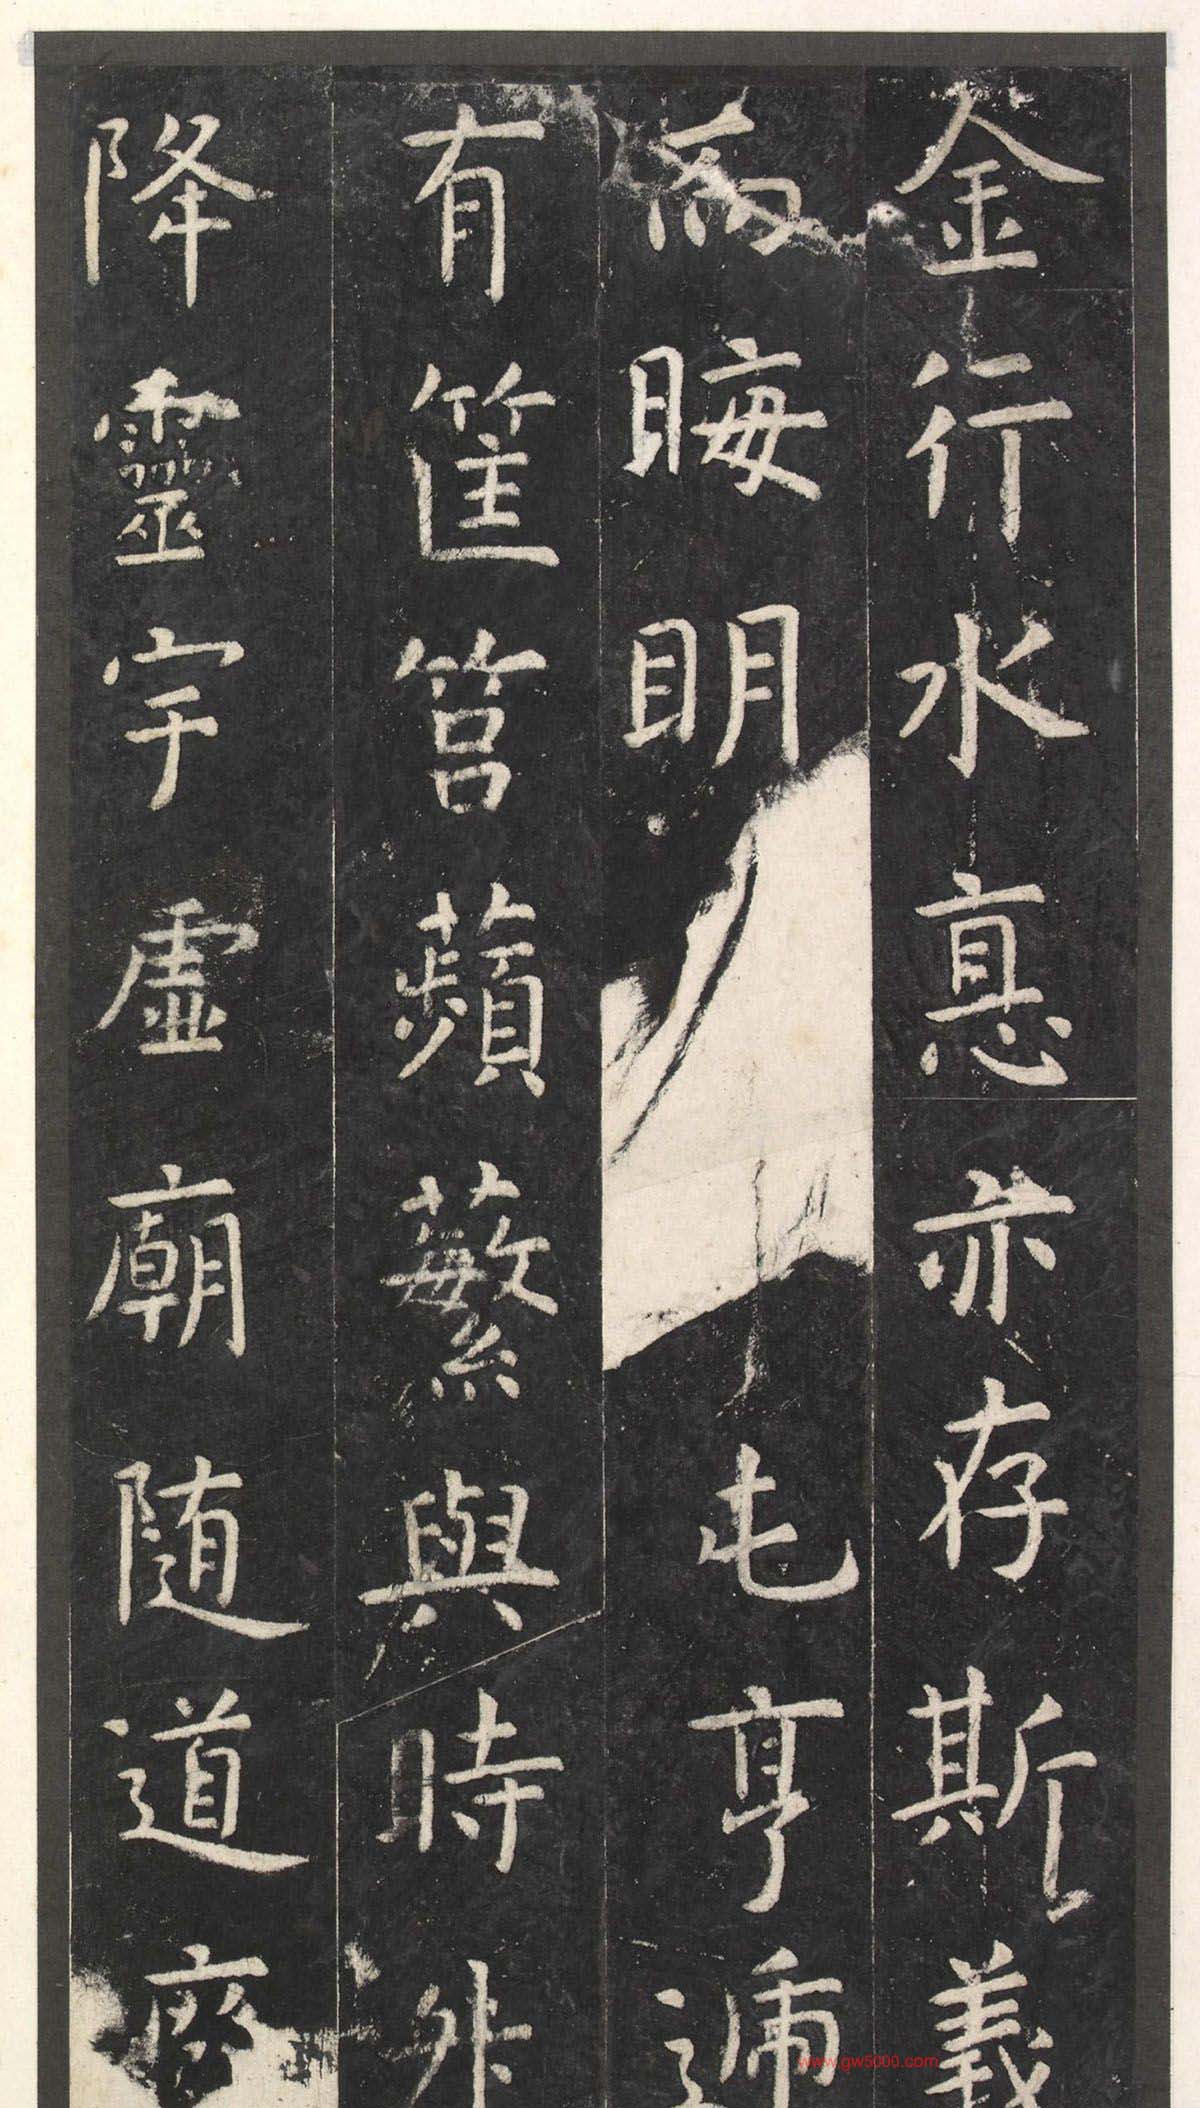 金行水惪亦存斯義
而晦明屯亨遞
有筐筥蘋蘩與時升
降靈宇虛廟隨道廢
www.gw5000.com